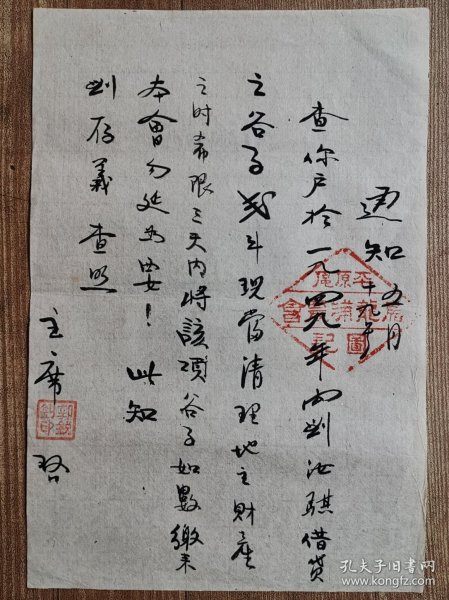 通知 五月十九号
查你户於一九四九年向刘汝騏借貸
之谷子弍斗现當清理地主財產
之时希限三天内將該項谷子如數繳来
本會勿延為要！ 此知
刘存義 查照
主席 啓
孔夫子旧书网
book.kongfz.com